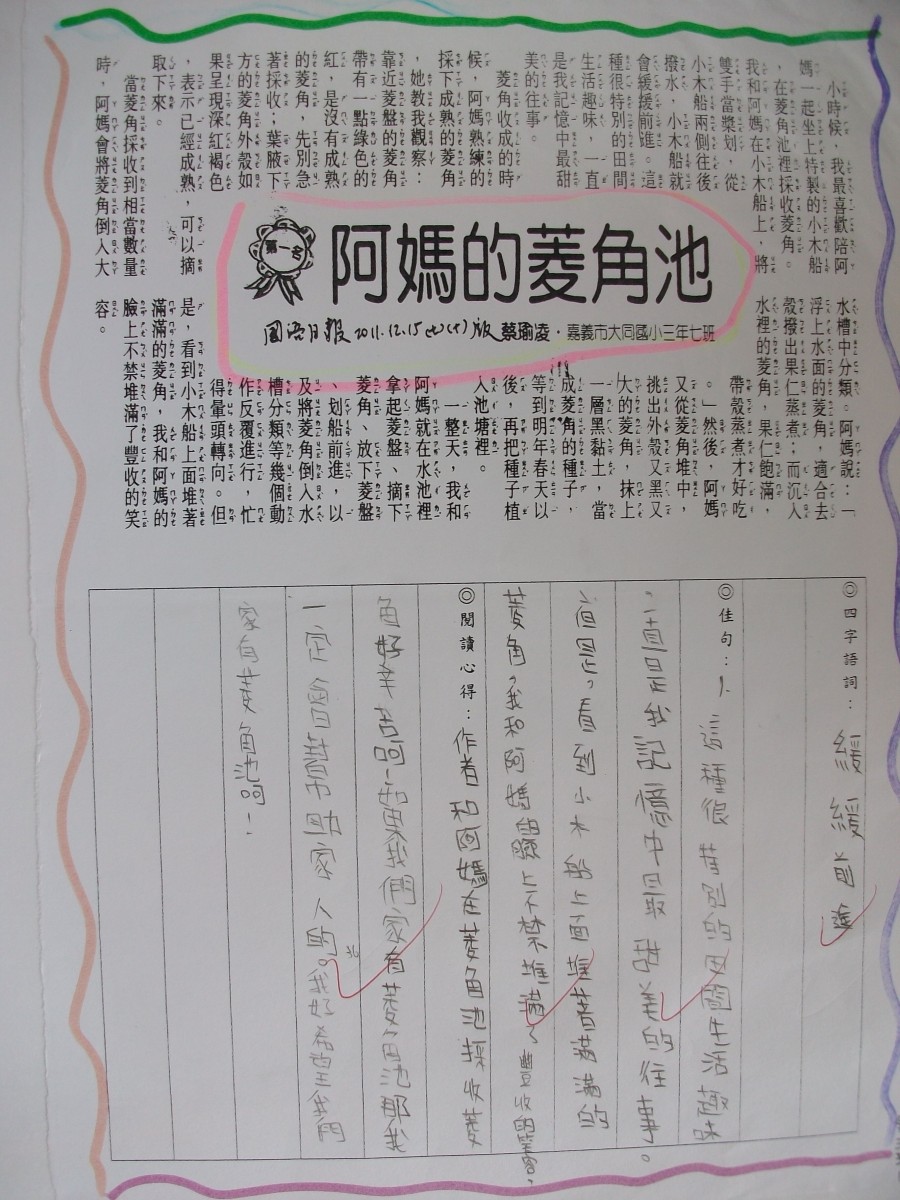 阿媽的菱角池
第一名
國語日報 2011.12.15(七)(十)版
蔡瑜凌・嘉義市大同國小三年七班
小時候，我最喜歡陪阿
媽一起坐上特製的小木船
，在菱角池裡採收菱角。
我和阿媽在小木船上，將
雙手當槳划，從
小木船兩側往後
撥水，小木船就
會緩緩前進。這
種很特別的田間
生活趣味，一直
是我記憶中最甜
美的往事。
菱角收成的時
候，阿媽熟練的
採下成熟的菱角
，她教我觀察：
靠近菱盤的菱角
帶有一點綠色的
紅，是沒有成熟
的菱角，先別急
著採收；葉腋下
方的菱角外殼如
果呈現深紅褐色
，表示已經成熟，可以摘
取下來。
當菱角採收到相當數量
時，阿媽會將菱角倒入大
水槽中分類。阿媽說：「
浮上水面的菱角，適合去
殼撥出果仁蒸煮；而沉入
水裡的菱角，果仁飽滿，
帶殼蒸煮才好吃
。」然後，阿媽
又從菱角堆中，
挑出外殼又黑又
大的菱角，抹上
一層黑黏土，當
成菱角的種子，
等到明年春天以
後，再把種子植
入池塘裡。
一整天，我和
阿媽就在水池裡
拿起菱盤、摘下
菱角、放下菱盤
、划船前進，以
及將菱角倒入水
槽分類等幾個動
作反覆進行，忙
得暈頭轉向。但
是，看到小木船上面堆著
滿滿的菱角，我和阿媽的
臉上不禁堆滿了豐收的笑
容。
◎四字語詞：緩緩前進
◎佳句：1、這種很特別的田間生活趣味
，一直是我記憶中最甜美的往事。
2、但是，看到小木船上面堆著滿滿的
菱角，我和阿媽的臉上不禁堆滿了豐收的笑容。
◎閱讀心得：作者和阿媽在菱角池採收菱
角好辛苦呵！如果我們家有菱角池那我
一定會幫助家人的。我好希望我們
家有菱角池呵！